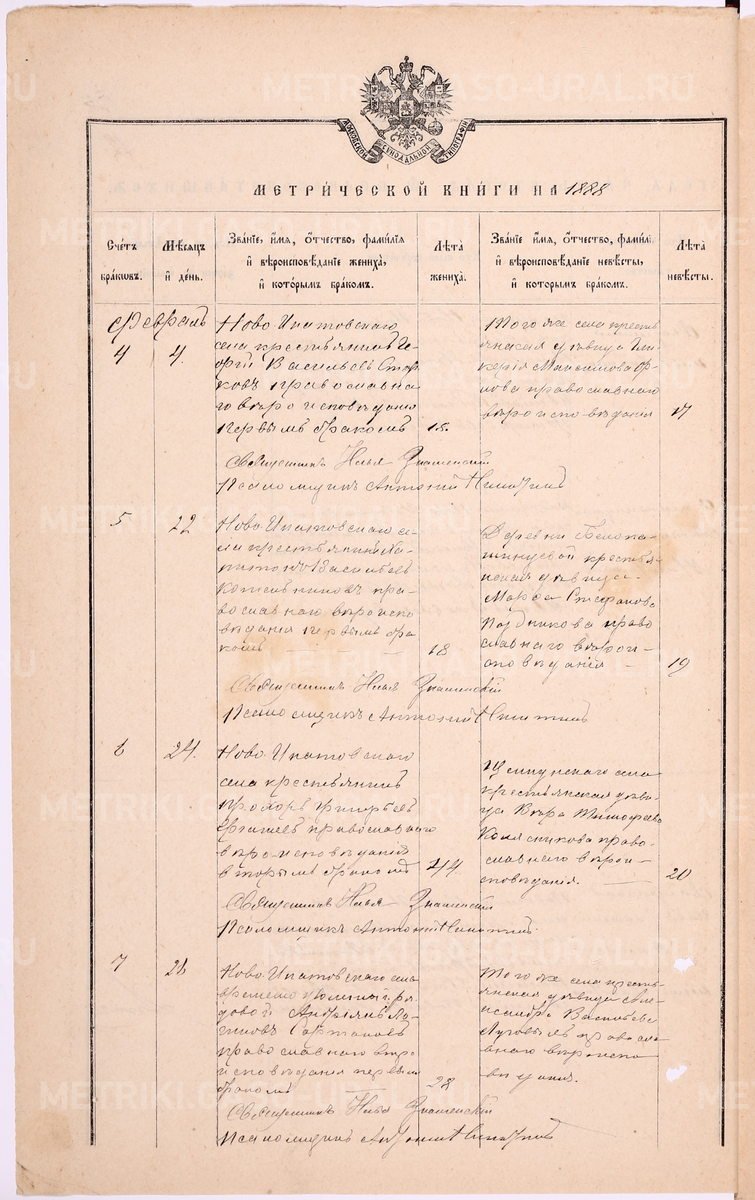 МОСКОВСКОЙ СѴНОДАЛЬНОЙ ТИПОГРАФІИ
МЕТРИЧЕСКОЙ КНИГИ НА 1888
Счетъ браковъ.
Мѣсяцъ и день.
Званіе, имя, отчество, фамилія и вѣроисповѣданіе жениха, и которымъ бракомъ.
Лѣта жениха.
Званіе имя, отчество, фамилі и вѣроисповѣданіе невѣсты, и которымъ бракомъ.
Лѣта невѣсты.
Февраль
4
4.
Ново Ипатовскаго
села крестьянинъ Ге-
оргій Васильевъ Стар-
ковъ православна-
го вѣроисповѣданія
первымъ бракомъ
18.
Того же села кресть-
янская дѣвица Гли-
керія Максимова
православнаго
вѣроисповѣданія
17
Священникъ Илья Знаменскій
Псаломщикъ Антоній Никитинъ
5
22
Ново Ипатовскаго се-
ла крестьянинъ Ка-
питонъ Васильевъ
Кожевниковъ пра-
вославнаго вѣроиспо-
вѣданія первымъ бра-
комъ
18
Деревни
крестья-
нская дѣвица
Марѳа Стефанова
Поздникова право
славнаго вѣрои-
сповѣданія
19
Священникъ Илья Знаменскій
Псаломщикъ Антоній Никитинъ
6
24.
Ново Ипатовскаго
села крестьянинъ
Прохоръ Григорьевъ
православнаго
вѣроисповѣданія
вторымъ бракомъ
44
села
крестьянская дѣви-
ца Вѣра Тимофеева
Колясникова право-
славнаго вѣрои-
сповѣданія.
20
Священникъ Илья Знаменскій
Псаломщикъ Антоній Никитинъ.
7
Ново Ипатовскаго села
временно
Сартаковъ
православнаго вѣро
исповѣданія первымъ
бракомъ
28
Того же села кресть-
янская дѣвица Але-
ксандра Васильева
правосла-
внаго вѣроиспо-
вѣданія.
Священникъ Илья Знаменскій
Псаломщикъ Антоній Никитинъ